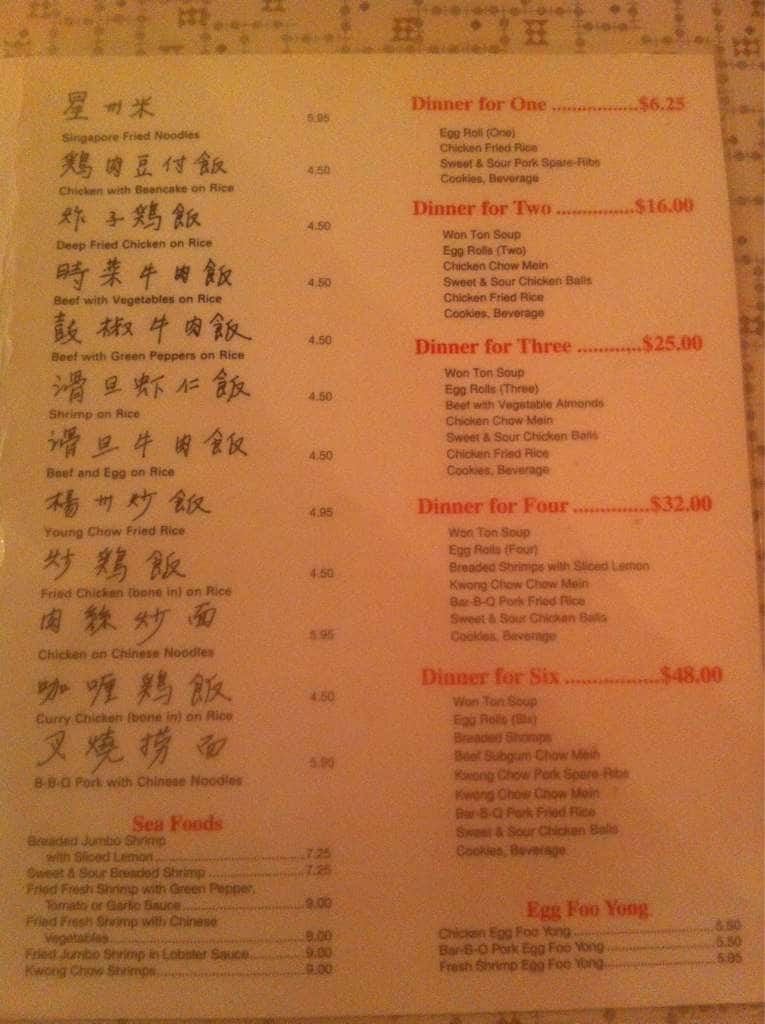 星州米
5.95
Singapore Fried Noodles
鷄肉豆付飯
4.50
Chicken with Beancake on Rice
炸子鷄飯
4.50
Deep Fried Chicken on Rice
時菜牛肉飯
4.50
Beef with Vegetables on Rice
鼓椒牛肉飯
4.50
Beef with Green Peppers on Rice
滑旦虾仁飯
4.50
Shrimp on Rice
滑旦牛肉飯
4.50
Beef and Egg on Rice
楊州炒飯
4.95
Young Chow Fried Rice
炒鷄飯
4.50
Fried Chicken (bone in) on Rice
肉絲炒面
5.95
Chicken on Chinese Noodles
咖喱鷄飯
4.50
Curry Chicken (bone in) on Rice
叉燒撈面
5.95
B-B-Q Pork with Chinese Noodles
Sea Foods
Breaded Jumbo Shrimp
with Sliced Lemon 7.25
Sweet & Sour Breaded Shrimp 7.25
Fried Fresh Shrimp with Green Pepper,
Tomato or Garlic Sauce 9.00
Fried Fresh Shrimp with Chinese
Vegetables 8.00
Fried Jumbo Shrimp in Lobster Sauce 9.00
Kwong Chow Shrimps 9.00
Dinner for One ................$6.25
Egg Roll (One)
Chicken Fried Rice
Sweet & Sour Pork Spare-Ribs
Cookies, Beverage
Dinner for Two ..............$16.00
Won Ton Soup
Egg Rolls (Two)
Chicken Chow Mein
Sweet & Sour Chicken Balls
Chicken Fried Rice
Cookies, Beverage
Dinner for Three ............$25.00
Won Ton Soup
Egg Rolls (Three)
Beef with Vegetable Almonds
Chicken Chow Mein
Sweet & Sour Chicken Balls
Chicken Fried Rice
Cookies, Beverage
Dinner for Four ..............$32.00
Won Ton Soup
Egg Rolls (Four)
Breaded Shrimps with Sliced Lemon
Kwong Chow Chow Mein
Bar-B-Q Pork Fried Rice
Sweet & Sour Chicken Balls
Cookies, Beverage
Dinner for Six .................$48.00
Won Ton Soup
Egg Rolls (Six)
Breaded Shrimps
Beef Subgum Chow Mein
Kwong Chow Pork Spare-Ribs
Kwong Chow Chow Mein
Bar-B-Q Pork Fried Rice
Sweet & Sour Chicken Balls
Cookies, Beverage
Egg Foo Yong
Chicken Egg Foo Yong 5.50
Bar-B-Q Pork Egg Foo Yong 5.50
Fresh Shrimp Egg Foo Yong 5.95